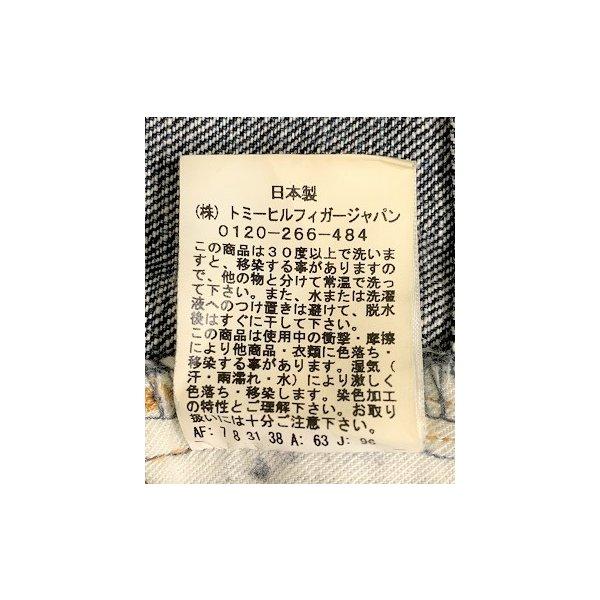 日本製
(株) トミーヒルフィガージャパン
0120-266-484
この商品は30度以上で洗いま
すと、移染する事がありますの
で、他の物と分けて常温で洗っ
て下さい。また、水または洗濯
液へのつけ置きは避けて、脱水
後はすぐに干して下さい。
この商品は使用中の衝撃・摩擦
により他商品・衣類に色落ち・
移染する事があります。湿気(
汗・雨濡れ・水)により激しく
色落ち・移染します。染色加工
の特性とご理解下さい。お取り
扱いには十分ご注意下さい。
AF: 7 8 31 38 A: 63 J: 96